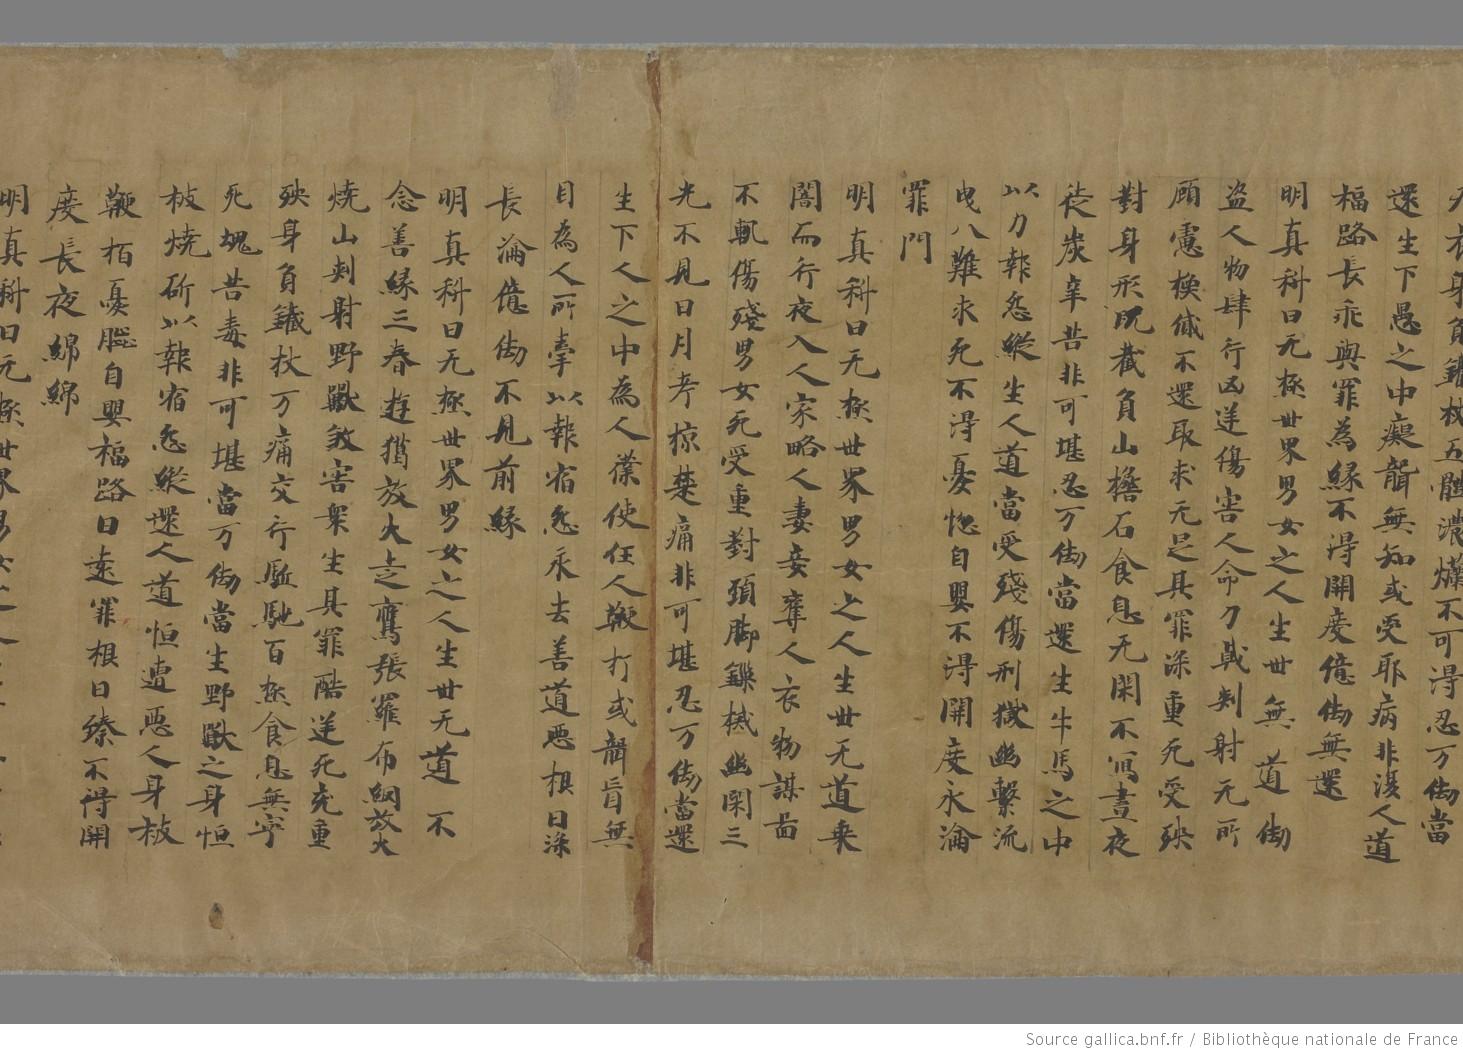 衣身負鐵杖五體濃爛不可得忍万劫當
還生下愚之中癡聾無知或受耶病非復人道
福路長乖與罪為緣不得開度億劫無還
明真科曰无極世界男女之人生世無道劫
盜人物肆行凶逆傷害人命刀戟剌射无所
顧慮換俄不還取求无足其罪深重死受殃
對身形既截負山檐石食息无閑不冩晝夜
徒炭辛苦非可堪忍万劫當還生牛馬之中
以力報怨縱生人道當受殘傷刑獄幽繫流
曳八難求死不得憂惚自嬰不得開度永淪
罪門
明真科曰无極世界男女之人生世无道乘
闇而行夜入人家略人妻妾奪人衣物謀啚
不軌傷殘男女死受重對頭脚鏁械幽閇三
光不見日月考掠楚痛非可堪忍万劫當還
生下人之中為人僕使任人鞭打或聾盲無
目為人所牽以報宿怨永去善道惡根日深
長淪億劫不見前緣
明真科曰无極世界男女之人生世无道不
念善緣三春遊獵放火走鷹張羅布網放火
燒山剌射野獸煞害衆生其罪酷逆死充重
殃身負鐵杖万痛交行駈馳百極食息無寧
死魂苦毒非可堪當万劫當生野獸之身恒
被燒斫以報宿怨縱還人道恒遭惡人身被
鞭栢憂惱自嬰福路日遠罪根日臻不得開
度長夜綿綿
明真科曰无極世界男女之人
Source gallica.bnf.fr / Bibliothèque nationale de France